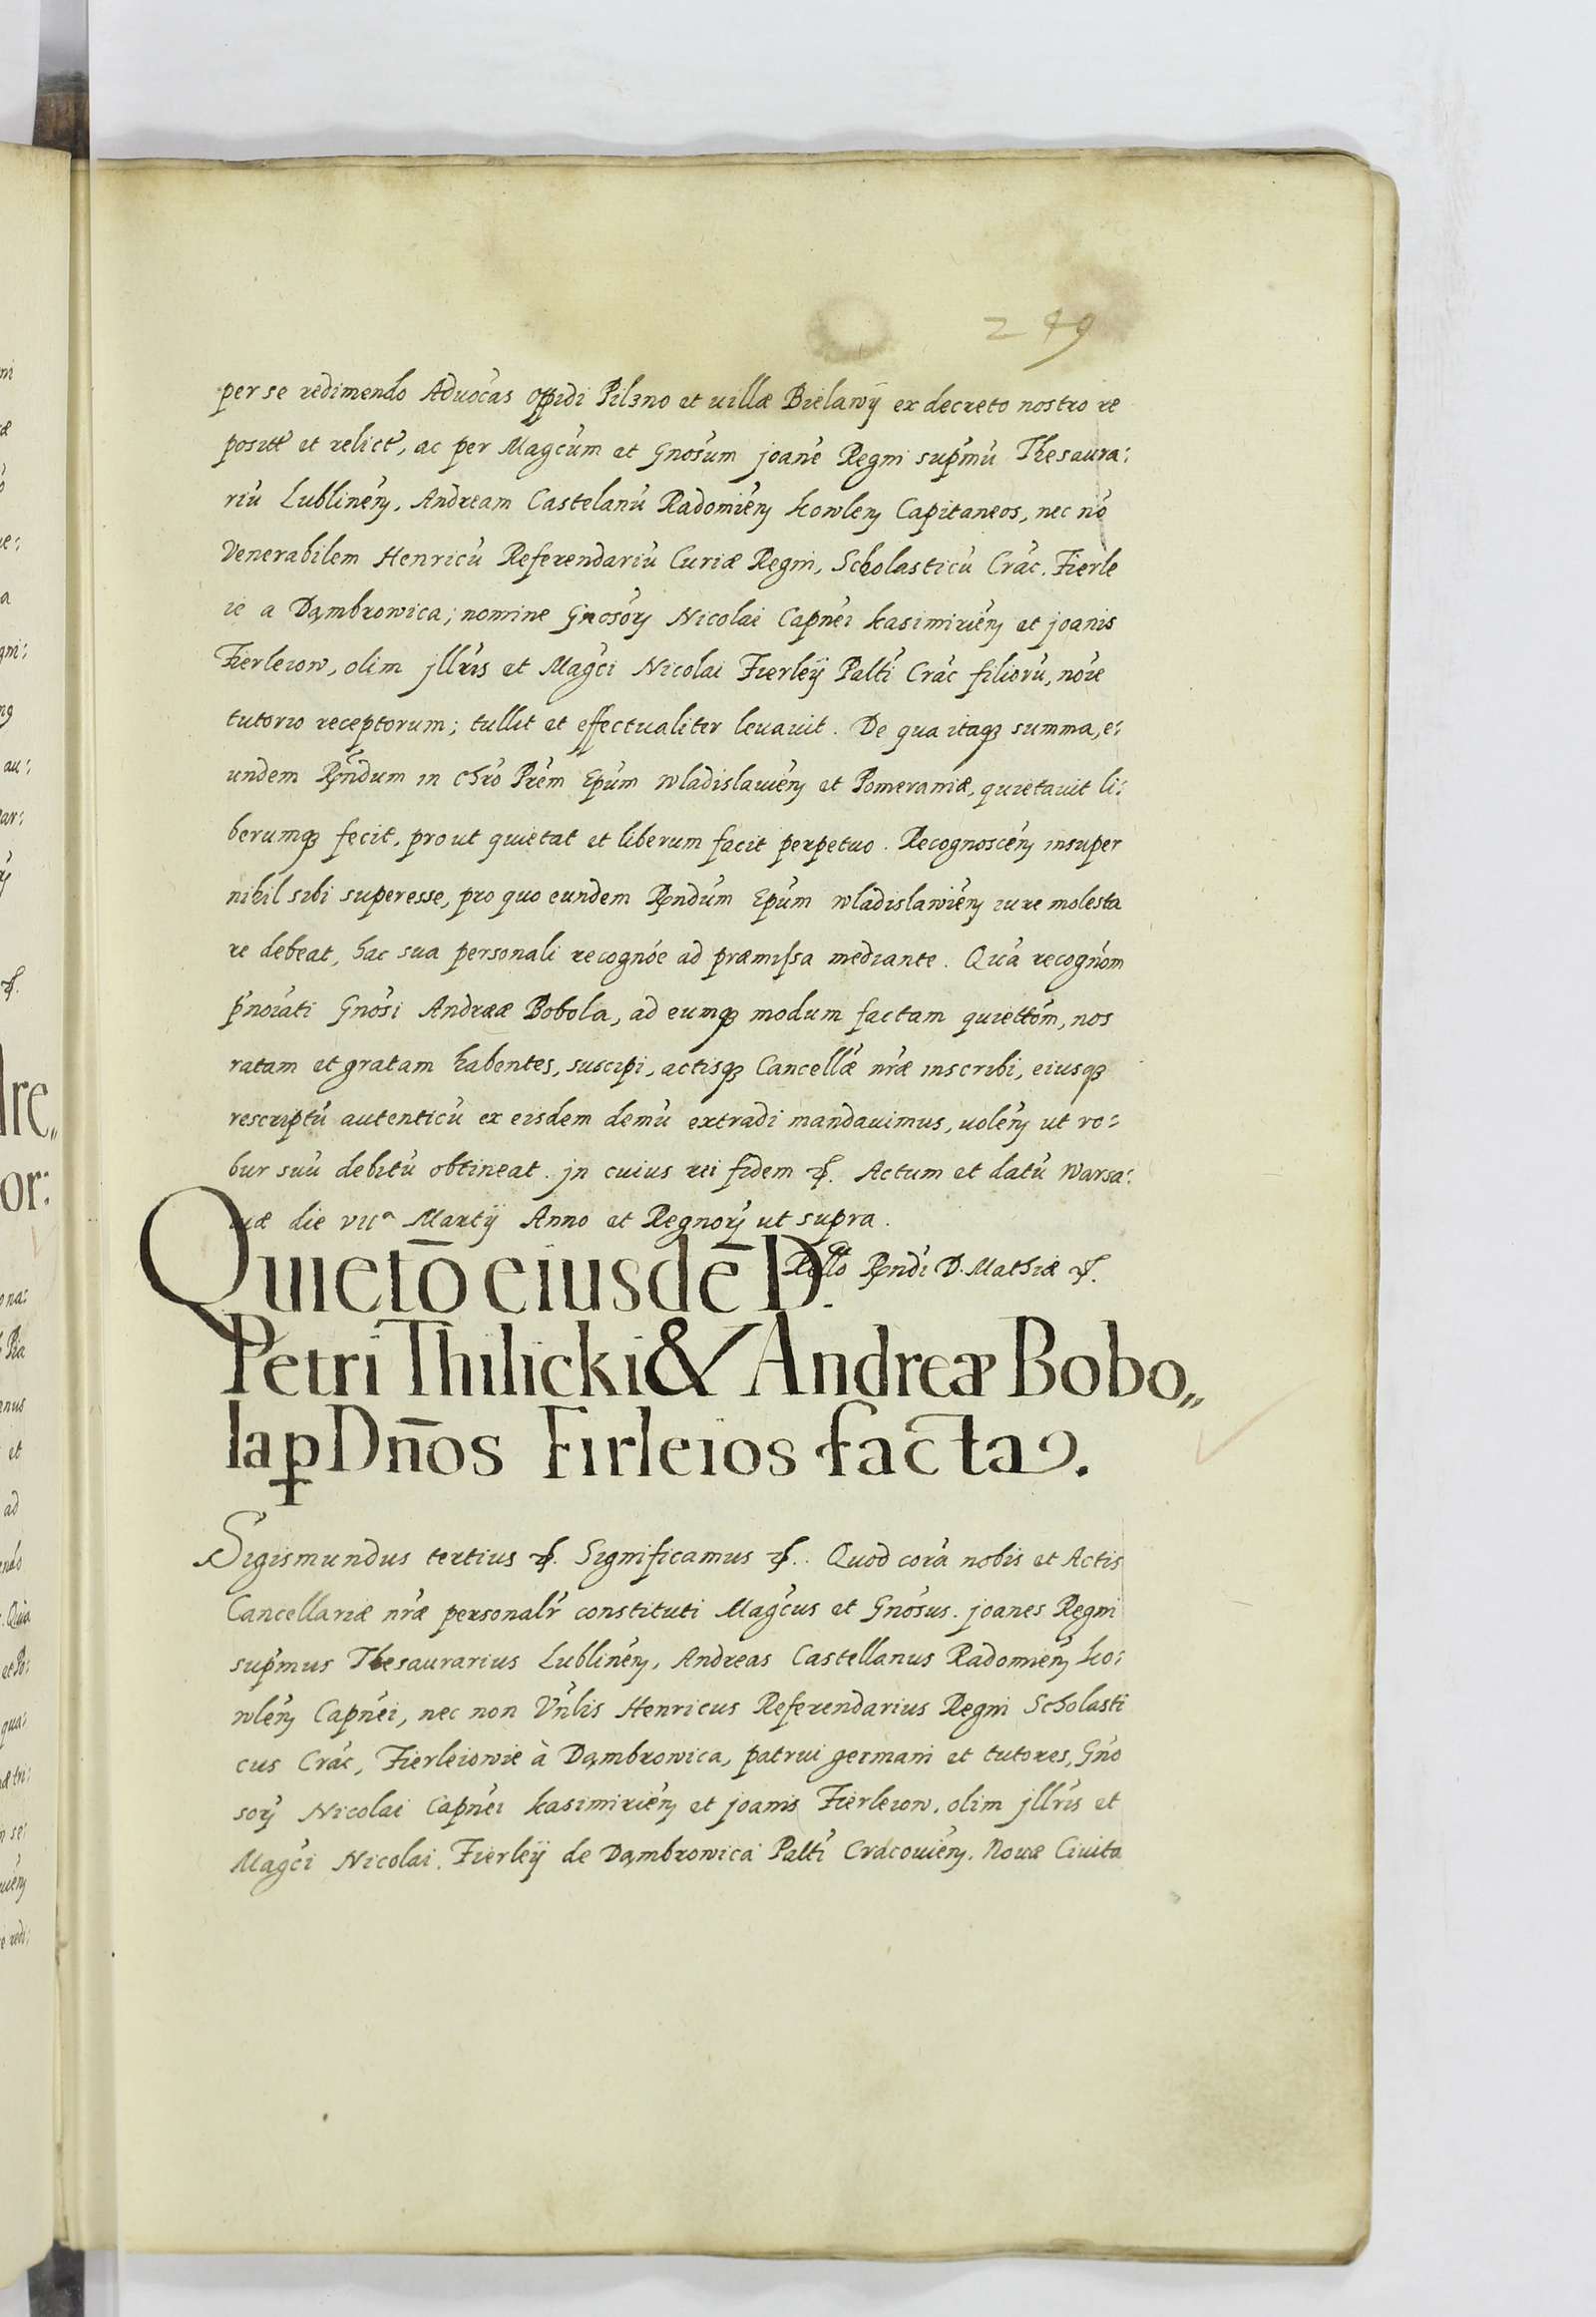 249
per se redimendo Aduocãs oppidi Pilzno et uillæ Bielawÿ ex decreto nostro re
posite et relicte, ac per Magcũm et Gnosũm joanẽ Regni supmũ Thesaura:
riũ Lublineñ, Andream Castelanũ Radomieñ Kowleñ Capitaneos, nec nõ
Venerabilem Henricũ Referendariũ Curiæ Regni, Scholasticũ Crac̃. Fierle
ie a Dąmbrowica; nomine Gnosõrȝ Nicolai Capnẽi Kasimirieñ et joanis
Fierleiow, olim jllr̃is et Magc̃i Nicolai Fierleÿ Paltĩ Crac̃ filiorũ, noĩe
tutorio receptorum; tullit et effectualiter leuauit. De qua itaqȝ summa, e:
undem Rñdum in Chrõ Prẽm Epũm Wladislauieñ et Pomeraniæ, quietauit li:
berumqȝ fecit, prout quietat et liberum facit perpetuo. Recognosceñ insuper
nihil sibi superesse, pro quo eundem Rndũm Epũm Wladislawieñ iure molesta
re debeat, hac sua personali recognõe ad præmissa mediante. Quã recognõm
pñoĩati Gnõsi Andreæ Bobola, ad eumqȝ modum factam quiettõm, nos
ratam et gratam habentes, suscipi, actisqȝ Cancellæ̃ nr̃æ inscribi, eiusqȝ
rescriptũ autenticũ ex eisdem demũ extradi mandauimus, uoleñ ut ro:
bur suũ debitũ obtineat. jn cuius rei fidem &. Actum et datũ Warsa:
uiæ die VIIa Martÿ Anno et Regnorȝ ut supra.
Rello Rndĩ D. Mathiæ &.
Quietõ eiusdẽ D.
Petri Thilicki & Andreæ Bobo„
la ꝑ Dños Firleios facta.
Sigismundus tertius &. Significamus &. Quod corã nobis et Actis
Cancellariæ nr̃æ personalr̃ constituti Magc̃us et Gnõsus. joanes Regni
supm̃us Thesaurarius Lublineñ, Andreas Castellanus Radomieñ Ko:
wleñ Capnẽi, nec non Vnl̃is Henricus Referendarius Regni Scholasti
cus Crac̃, Fierleiowie à Dąmbrowica, patrui germani et tutores, Gño
sorȝ Nicolai Capnẽi Kasimirieñ et joanis Fierleiow, olim jllr̃is et
Magc̃i Nicolai Fierleÿ de Dąmbrowica Paltĩ Cracouieñ. Nouæ Ciuita